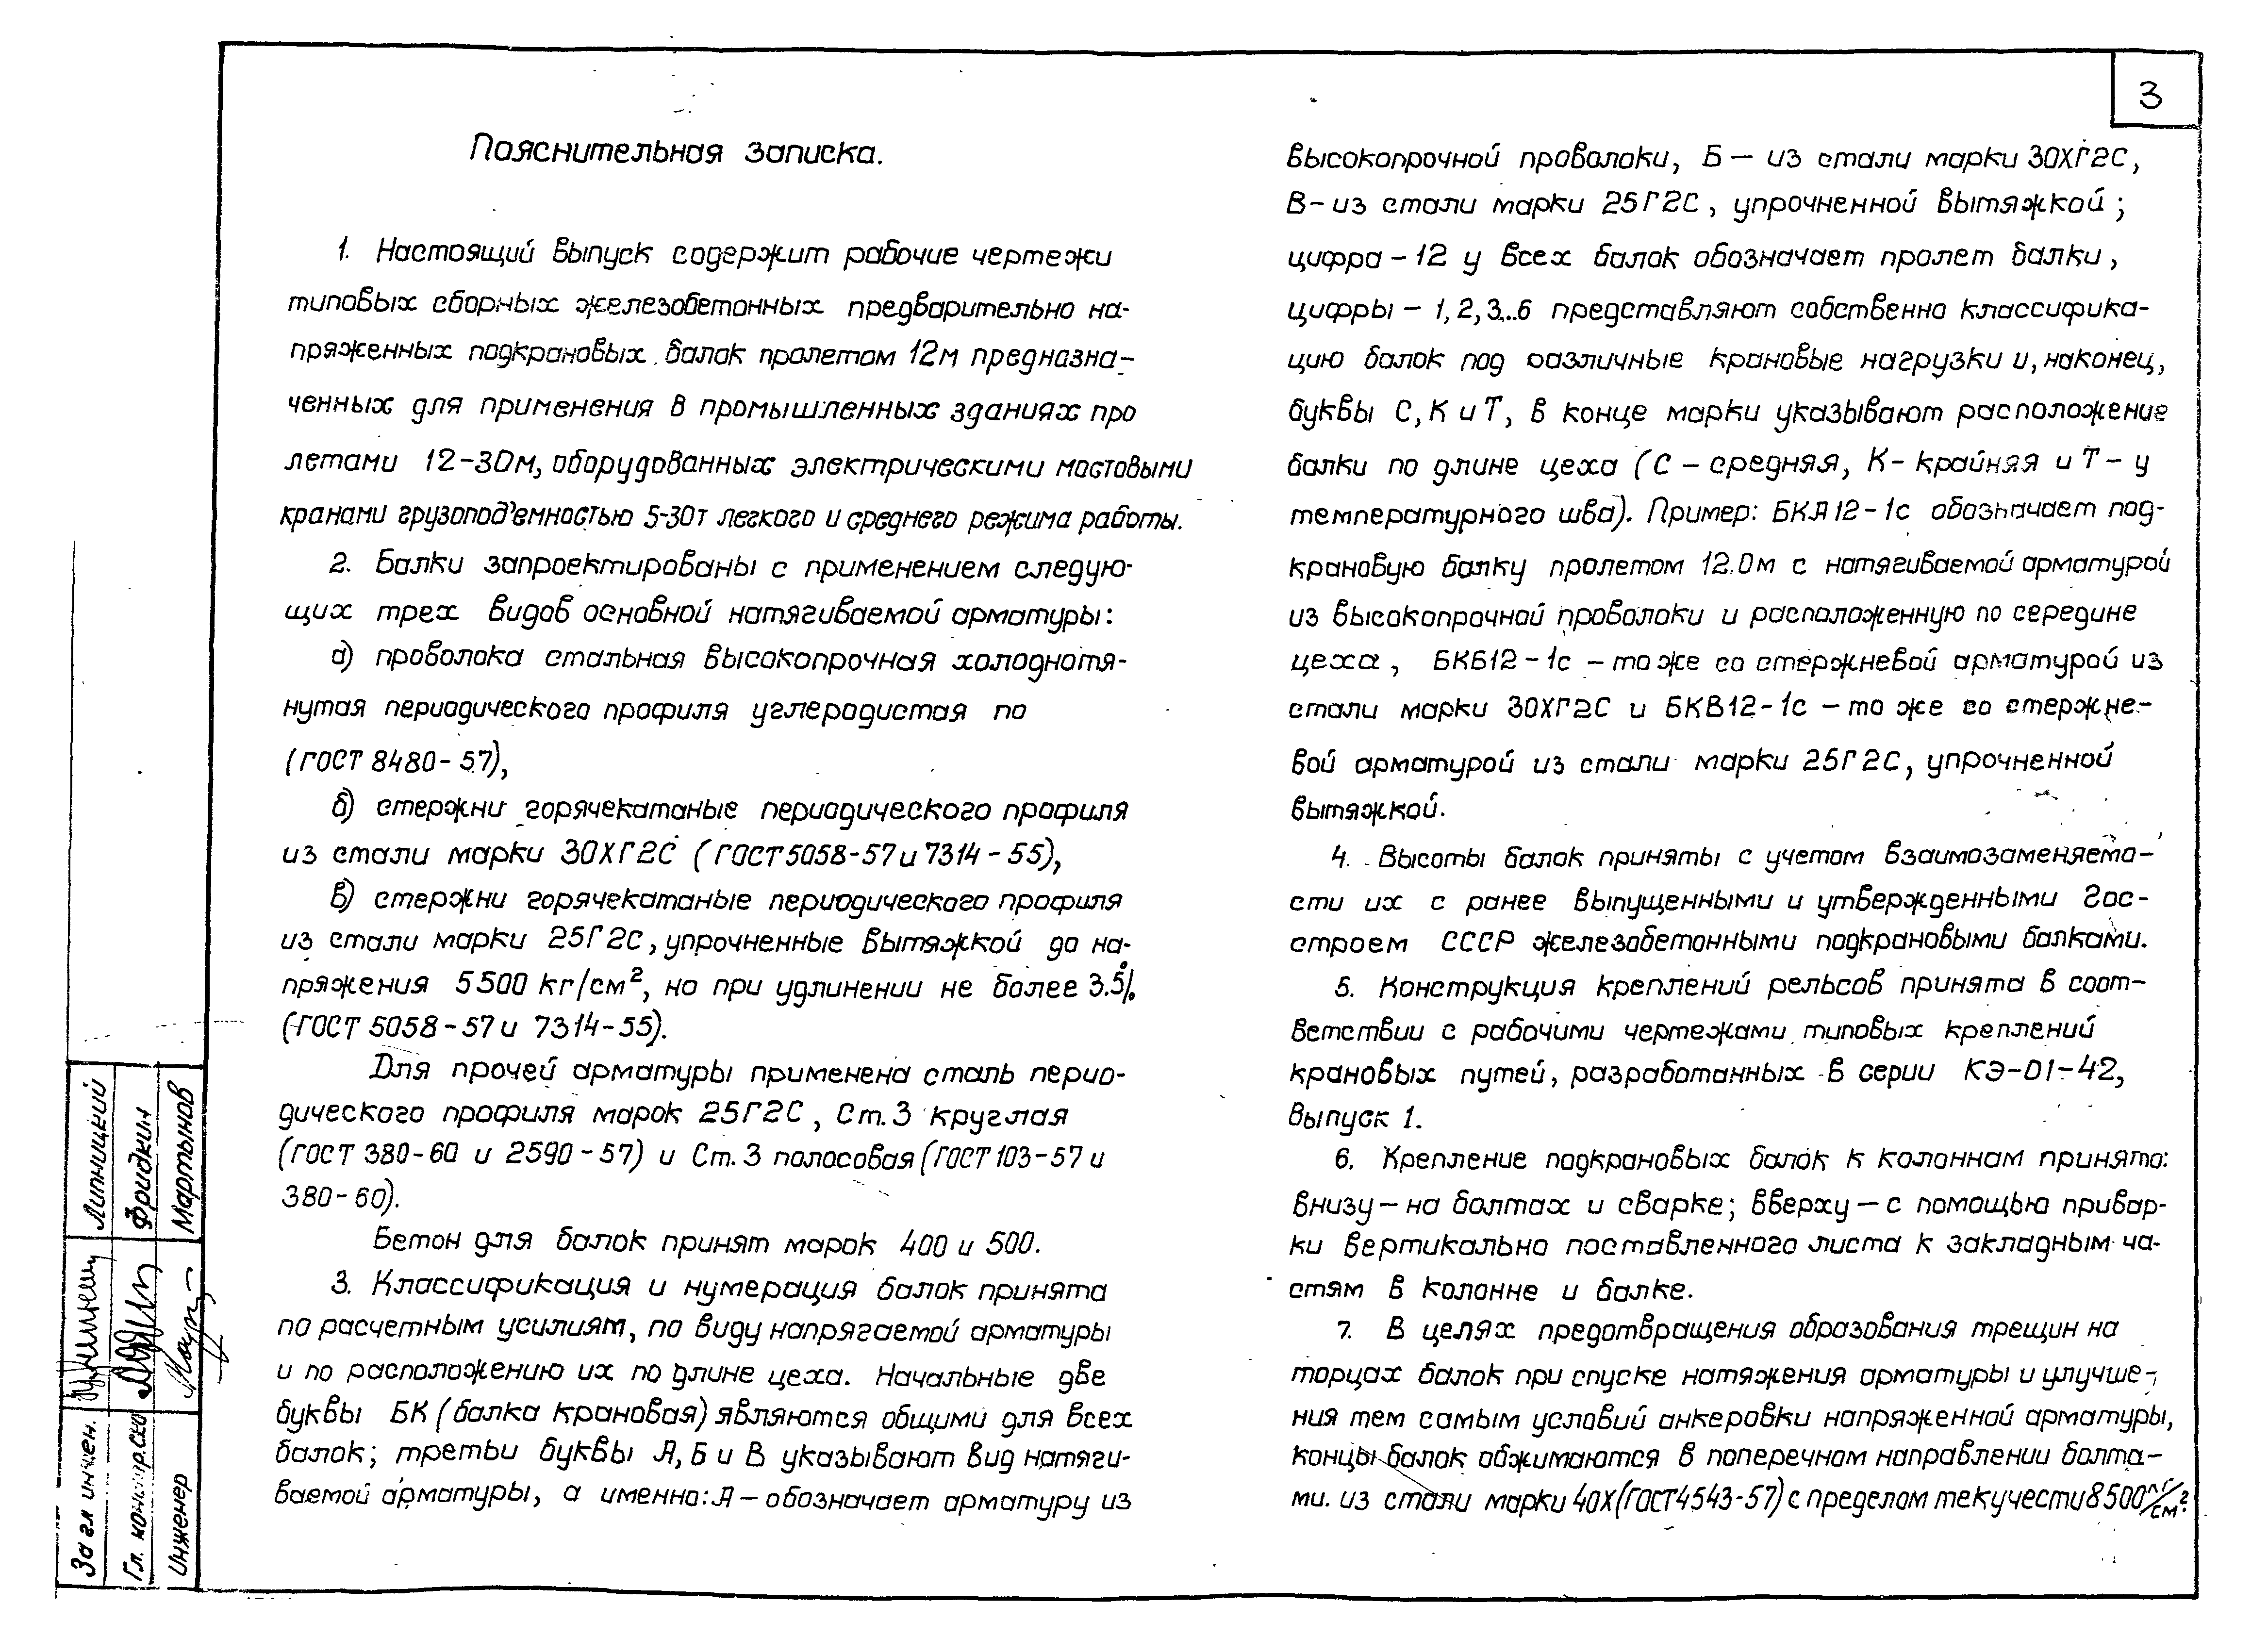 3
Пояснительная записка.
1. Настоящий выпуск содержит рабочие чертежи
типовых сборных железобетонных предварительно на-
пряженных подкрановых балок пролетом 12м предназна-
ченных для применения в промышленных зданиях про
летами 12-30м, оборудованных электрическими мостовыми
кранами грузопод'емностью 5-30т легкого и среднего режима работы.
2. Балки запроектированы с применением следую-
щих трех видов основной натягиваемой арматуры:
а) проволока стальная высокопрочная холоднотя-
нутая периодического профиля углеродистая по
(ГОСТ 8480-57),
б) стержни горячекатаные периодического профиля
из стали марки 30ХГ2С (ГОСТ 5058-57 и 7314-55),
в) стержни горячекатаные периодического профиля
из стали марки 25Г2С, упрочненные вытяжкой до на-
пряжения 5500 кг/см², но при удлинении не более 3.5%
(ГОСТ 5058-57 и 7314-55).
Для прочей арматуры применена сталь перио-
дического профиля марок 25Г2С, Ст.3 круглая
(ГОСТ 380-60 и 2590-57) и Ст.3 полосовая (ГОСТ 103-57 и
380-60).
Бетон для балок принят марок 400 и 500.
3. Классификация и нумерация балок принята
по расчетным усилиям, по виду напрягаемой арматуры
и по расположению их по длине цеха. Начальные две
буквы БК (балка крановая) являются общими для всех
балок; третьи буквы А, Б и В указывают вид натяги-
ваемой арматуры, а именно: А – обозначает арматуру из
высокопрочной проволоки, Б – из стали марки 30ХГ2С,
В – из стали марки 25Г2С, упрочненной вытяжкой;
цифра – 12 у всех балок обозначает пролет балки,
цифры – 1, 2, 3...6 представляют собственно классифика-
цию балок под различные крановые нагрузки и, наконец,
буквы С, К и Т, в конце марки указывают расположение
балки по длине цеха (С – средняя, К – крайняя и Т – у
температурного шва). Пример: БКА12-1с обозначает под-
крановую балку пролетом 12.0м с натягиваемой арматурой
из высокопрочной проволоки и расположенную по середине
цеха, БКБ12-1с – то же со стержневой арматурой из
стали марки 30ХГ2С и БКВ12-1с – то же со стержне-
вой арматурой из стали марки 25Г2С, упрочненной
вытяжкой.
4. Высоты балок приняты с учетом взаимозаменяемо-
сти их с ранее выпущенными и утвержденными Гос-
строем СССР железобетонными подкрановыми балками.
5. Конструкция креплений рельсов принята в соот-
ветствии с рабочими чертежами типовых креплений
крановых путей, разработанных в серии КЭ-01-42,
выпуск 1.
6. Крепление подкрановых балок к колоннам принято:
внизу – на болтах и сварке; вверху – с помощью привар-
ки вертикально поставленного листа к закладным ча-
стям в колонне и балке.
7. В целях предотвращения образования трещин на
торцах балок при спуске натяжения арматуры и улучше-
ния тем самым условий анкеровки напряженной арматуры,
концы балок обжимаются в поперечном направлении болта-
ми. из стали марки 40Х (ГОСТ 4543-57) с пределом текучести 8500 кг/см².
За гл инжен. Липницкий
Гл. констр. СКО Фридкин
Инженер Мартынов